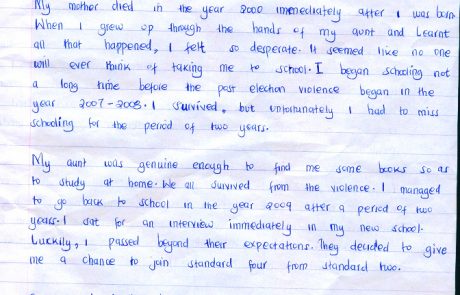 My mother died in the year 2000 immediately after I was born.
When I grew up through the hands of my aunt and learnt
all that happened, I felt so desperate. It seemed like no one
will ever think of taking me to school. I began schooling not
a long time before the post election violence began in the
year 2007-2008. I survived, but unfortunately I had to miss
schooling for the period of two years.
My aunt was genuine enough to find me some books so as
to study at home. We all survived from the violence. I managed
to go back to school in the year 2009 after a period of two
years. I sat for an interview immediately in my new school.
Luckily, I passed beyond their expectations. They decided to give
me a chance to join standard four from standard two.